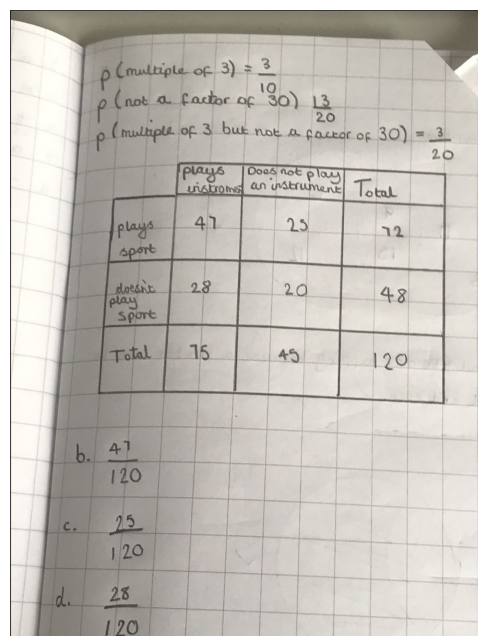 p(multiple of 3) = 3/10
p(not a factor of 30) 13/20
p(multiple of 3 but not a factor of 30) = 3/20
plays instrument Does not play an instrument Total
plays sport 47 25 72
doesn't play sport 28 20 48
Total 75 45 120
b. 47/120
c. 25/120
d. 28/120